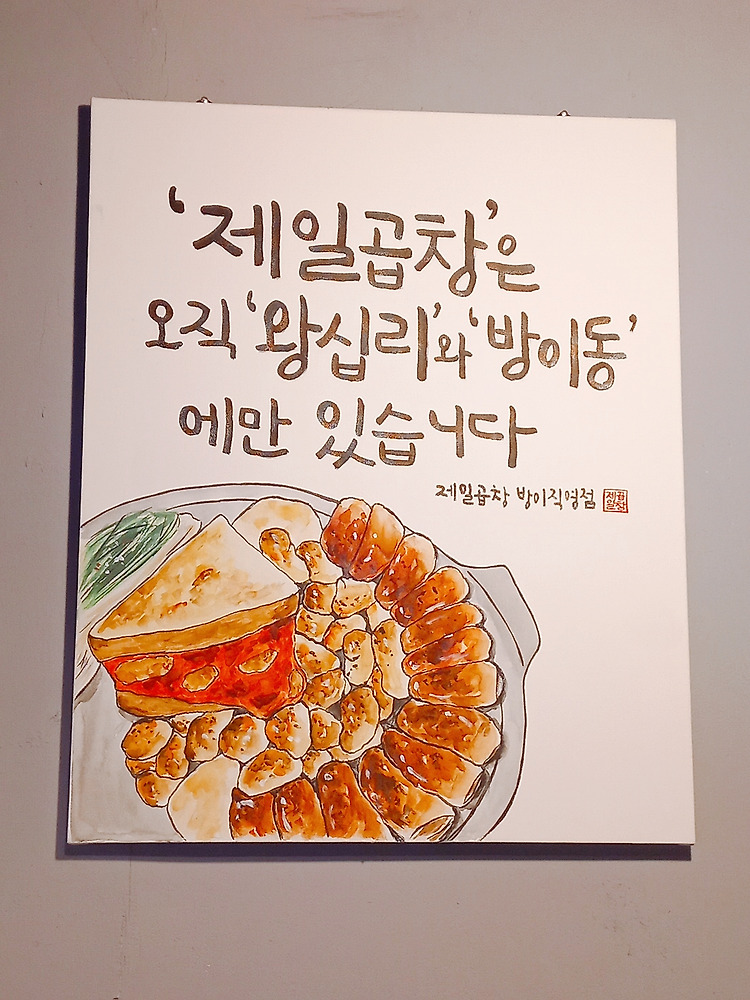 '제일곱창'은
오직 '왕십리'와 '방이동'
에만 있습니다
제일곱창 방이직영점
제일곱창